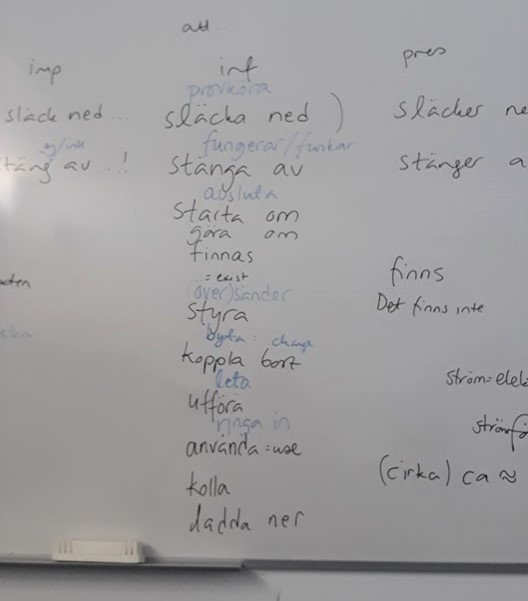 att..
imp
inf
pres
provköra
släck ned...
släcka ned )
släcker ne
ej/inte
fungerar/funkar
täng av ..!
stänga av
stänger a
avsluta
starta om
göra om
finnas
finns
= exist
(över)sänder
Det finns inte
styra
byta : change
koppla bort
leta
ström=elek
utföra
ringa in
strömfö
använda = use
(cirka) ca ≈
kolla
ladda ner